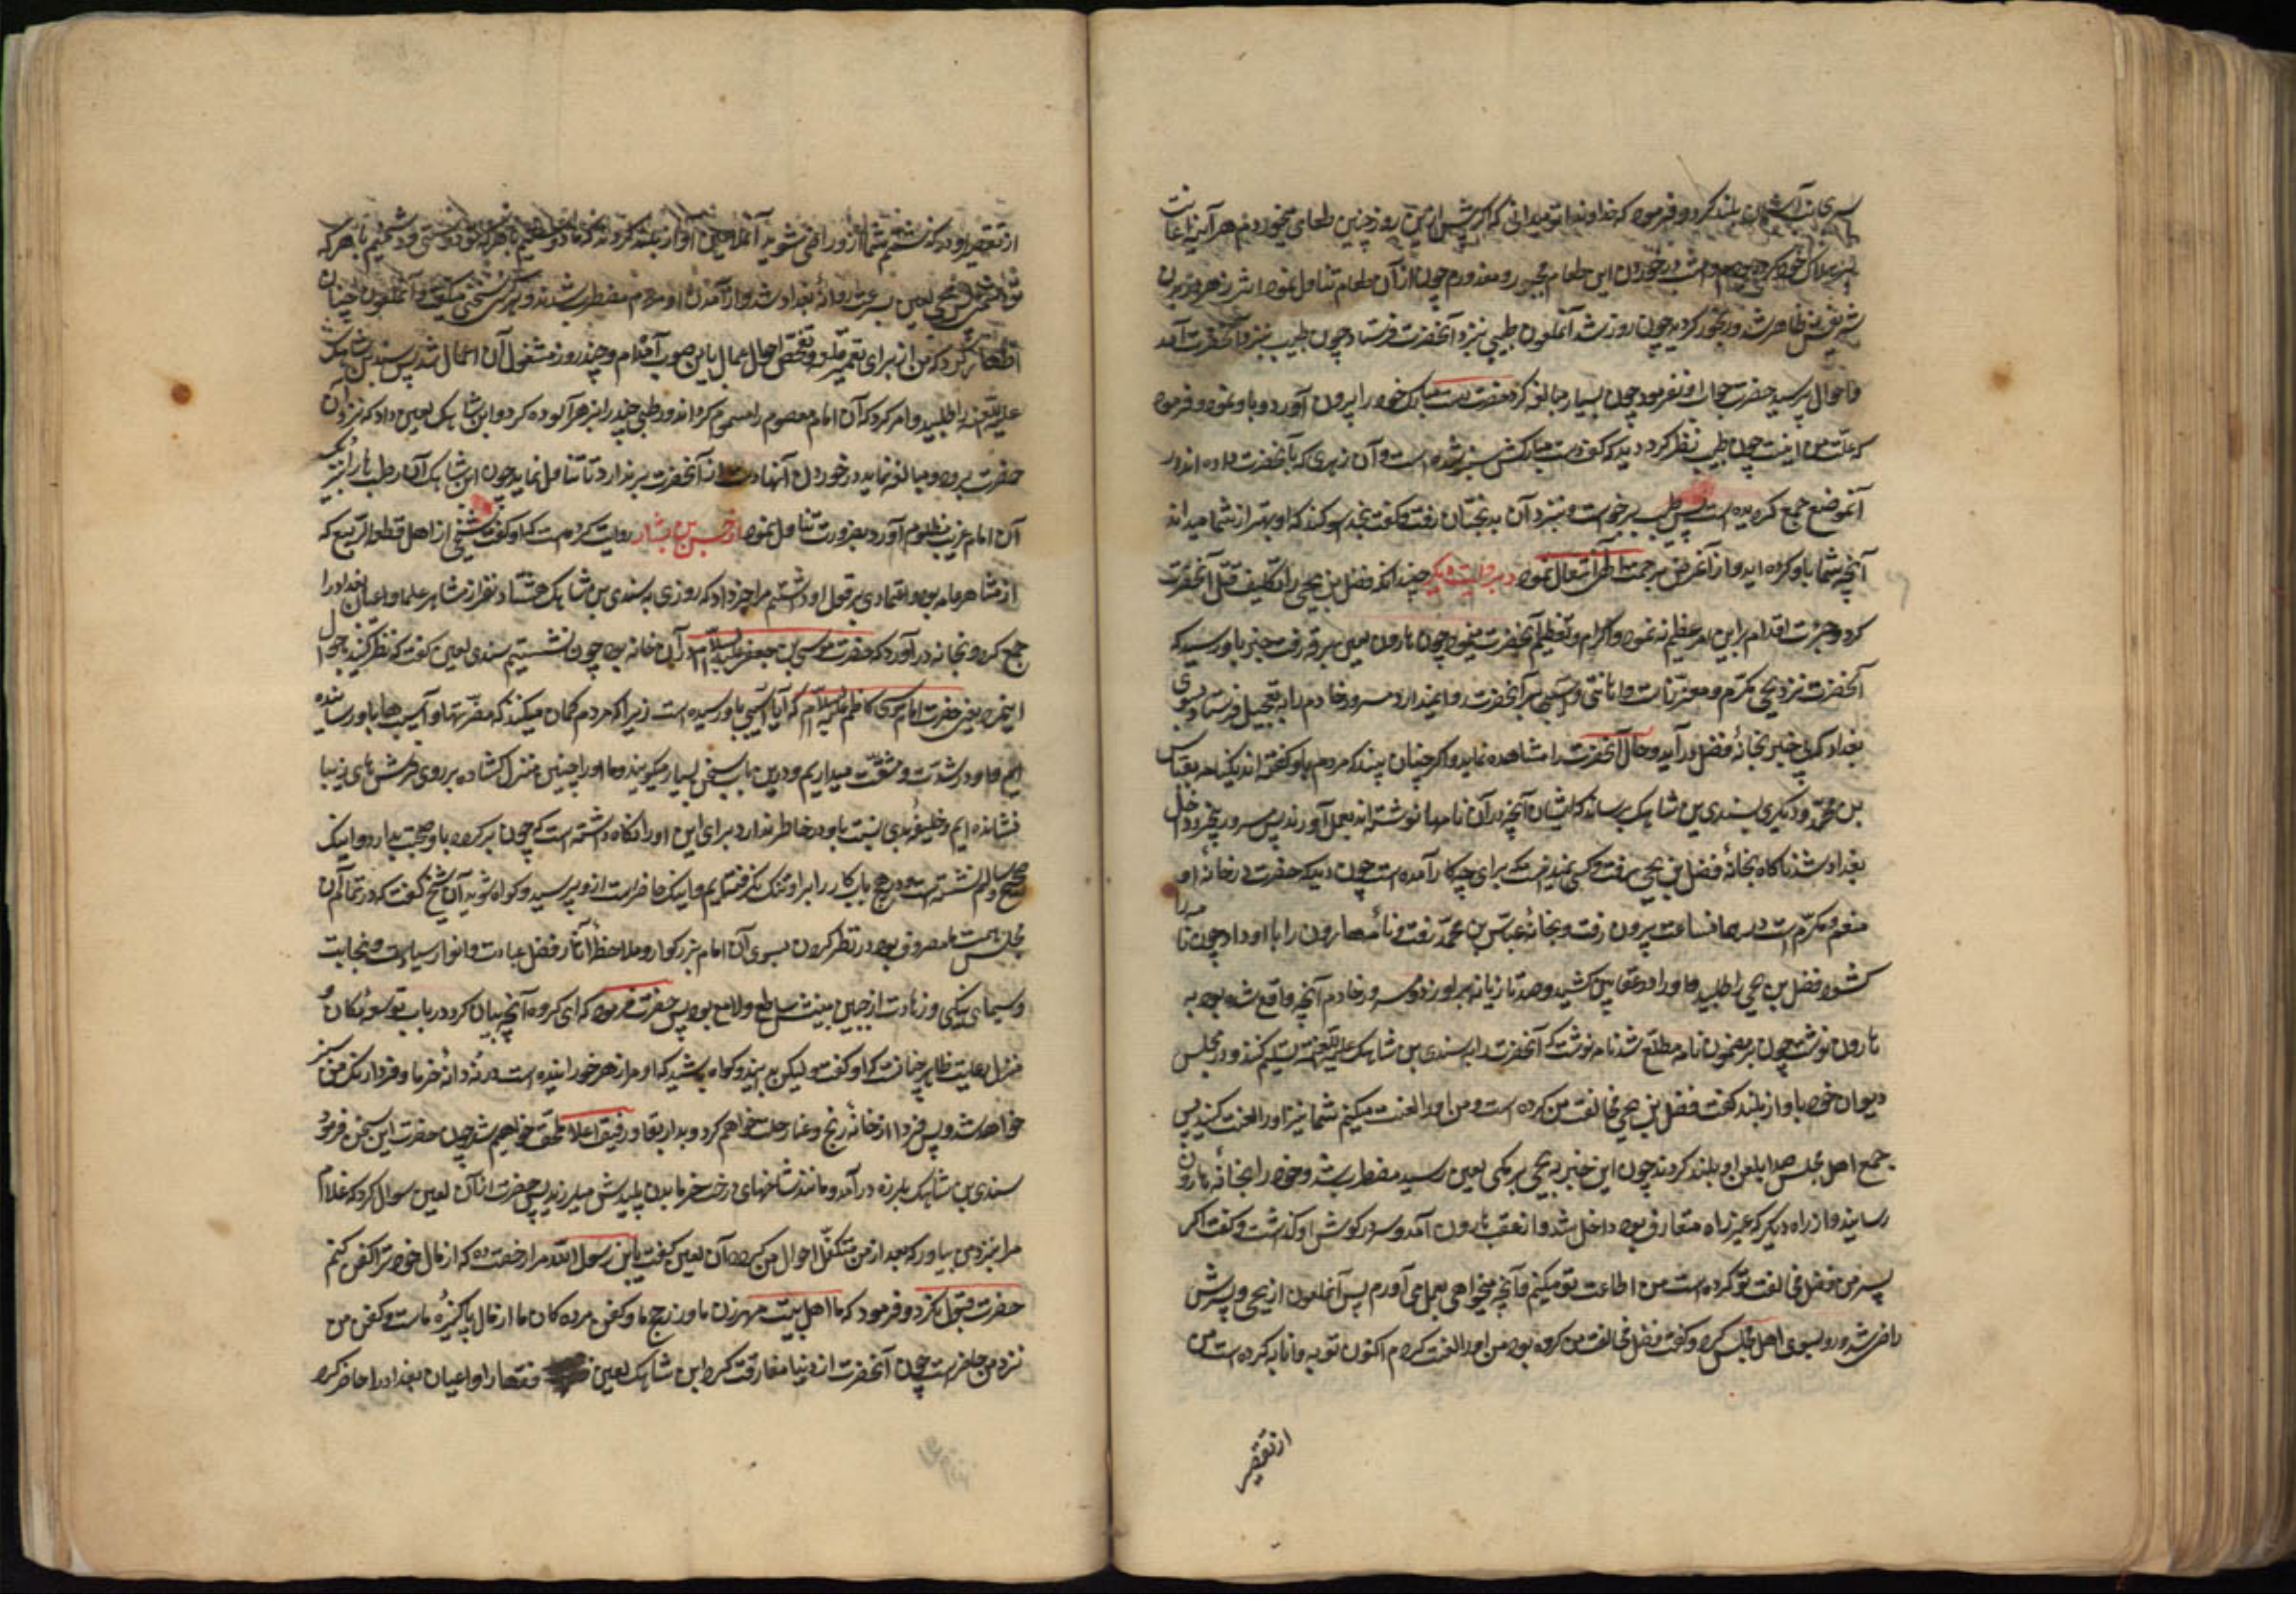 بسوی آسمان بلند کرد و فرمود که خداوندا تو میدانی که اکر پیش ازین روز چنین طعامی میخوردم هر آینه اعانت
بر هلاک خود کرده بودم و امشب در خوردن این طعام مجبور و معذورم چون از آن طعام تناول نمود اثر زهر در بدن
شریفش ظاهر شد و رنجور کردید چون روز شد آنملعون طبیبی نزد آنحضرت فرستاد چون طبیب بنزد آنحضرت آمد
و احوال پرسید حضرت جواب او نفرمود چون بسیار مبالغه کرد حضرت دست مبارک خود را بیرون آورد و باو نمود و فرمود
که علت من اینست چون طبیب نظر کرد دید که کف دست مبارکش سبز شده است و آن زهری که بآنحضرت داده اند در
آنموضع جمع کردیده است پس طبیب برخواست و بنزد آن بدبختان رفت و کفت بخدا سوکند که او بهتر از شما میداند
آنچه شما باو کرده اید و از آنمرض برحمت الهی انتقال نمود و بروایت دیکر چندانکه فضل بن یحیی را تکلیف قتل آنحضرت
کرد و جرئت اقدام بر این امر عظیم ننمود و اکرام و تعظیم آنحضرت مینمود چون هارون لعین برقه رفت خبر باو رسید که
آنحضرت نزد یحیی مکرم و معززنات و اهانتی و آسیبی بر آنحضرت روا نمیدارد مسرور خادم را به تعجیل فرستاد بسوی
بغداد که بی خبر بخانهٔ فضل درآید و حال آنحضرت را مشاهده نماید و اکر چنان بیند که مردم باو کفته اند یکنامه بعباس
بن محمد و دیکری بسندی بن شاهک برساند که ایشان آنچه در آن نامها نوشته اند بعمل آورند پس مسرور بیخبر داخل
بغداد شد ناکاه بخانهٔ فضل بن یحیی رفت و کسی نمیدانست که برای چه کار آمده است چون دید که حضرت در خانهٔ او
منعم و مکرم است در همانساعت بیرون رفت و بخانهٔ عباس بن محمد رفت و نامهٔ هارون را باو داد چون نامه را
کشود فضل بن یحیی را طلبید و او را در عقابین کشید و صد تازیانه بر او زد و مسرور خادم آنچه واقع شده بود به
هارون نوشت چون بر مضمون نامه مطلع شد نامه نوشت که آنحضرت را بسندی بن شاهک علیه اللعنه تسلیم کنند و در مجلس
دیوان خود باواز بلند کفت فضل بن یحیی مخالفت من کرده است و من او را لعنت میکنم شما نیز او را لعنت کنید پس
جمیع اهل مجلس صدا بلعن او بلند کردند چون این خبر به یحیی برمکی لعین رسید مضطرب شد و خود را بخانهٔ هارون
رسانید و از راه دیکر که غیر راه متعارف بود داخل شد و از عقب هارون آمد و سر در کوش او کذاشت و کفت اکر
پسر من فضل مخالفت تو کرده است من اطاعت تو میکنم و آنچه میخواهی بعمل می آورم پس آنملعون از یحیی و پسرش
راضی شد و رو بسوی اهل مجلس کرد و کفت فضل مخالفت من کرده بود من او را لعنت کردم اکنون توبه و انابه کرده است من
از تقصیر
از تقصیر او درکذشتم شما از او راضی شوید آنملاعین آواز بلند کردند که ما دوستیم با هر که تو دوستی و دشمنیم با هر که
تو دشمنی پس یحیی لعین بسرعت روانهٔ بغداد شد و از آمدن او مردم مضطرب شدند و هر کس سخنی میکفت و آنملعون چنان
اظهار کرد که من از برای تعمیر قلعه و تفحص احوال عمال باین صوب آمده ام و چند روز مشغول آن اعمال شد پس سندی بن شاهک
علیه اللعنه را طلبید و امر کرد که آن امام معصوم را مسموم کرداند و رطبی چند را بزهر آلوده کرد و بابن شاهک لعین داد که نزد آن
حضرت ببرد و مبالغه نماید در خوردن آنها و دست از آنحضرت برندارد تا تناول نماید چون ابن شاهک آن رطب ها را بنزدیک
آن امام غریب مظلوم آورد بضرورت تناول نمود از حسن بن بشار روایت کرده است که او کفت شیخی از اهل قطیعة الربیع که
از مشاهیر عامه بود و اعتمادی بر قول او داشتیم مرا خبر داد که روزی سندی بن شاهک هشتاد نفر از مشاهیر علما و اعیان بغداد را
جمع کرد و بخانه درآورد که حضرت موسی بن جعفر علیه السلام در آن خانه بود چون نشستیم سندی لعین کفت که نظر کنید باحوال
اینمرد یعنی حضرت امام موسی کاظم علیه السلام که آیا آسیبی باو رسیده است زیرا که مردم کمان میکنند که مضرتها و آسیب ها باو رسانیده
ایم و او را در شدت و مشقت میداریم و در این باب سخن بسیار میکویند و ما او را چنین منزل کشاده بر روی فرش های زیبا
نشانده ایم و خلیفه بدی نسبت باو در خاطر ندارد برای این او را نکاه داشته است که چون برکردد باو صحبت بدارد و اینک
صحیح و سالم نشسته است و در هیچ باب کار را بر او تنک نکرفته ایم و اینک حاضر است از او بپرسید و کواه شوید آن شیخ کفت که در تمام آن
مجلس همت ما مصروف بود در نظر کردن بسوی آن امام بزرکوار و ملاحظهٔ آثار فضل و عبادت و انوار سیادت و نجابت
و سیمای نیکی و زهادت از جبین مبینش ساطع و لامع بود پس حضرت فرمود که ای کروه آنچه بیان کرد در باب توسعهٔ مکان و
منزل و رعایت ظاهر چنانست که او کفت و لیکن بدانید و کواه باشید که او مرا زهر خورانیده است در نه دانهٔ خرما و فردا رنک من سبز
خواهد شد و پس فردا از خانهٔ رنج و عنا رحلت خواهم کرد و بدار بقا و رفیق اعلا ملحق خواهم شد چون حضرت این سخن فرمود
سندی بن شاهک بلرزه درآمد و مانند شاخهای درخت خرما بدن پلیدش میلرزید پس حضرت از آن لعین سوال کرد که غلام
مرا بنزد من بیاور که بعد از من متکفل احوال من کردد آن لعین کفت یابن رسول الله مرا رخصت ده که از مال خود ترا کفن کنم
حضرت قبول نکرد و فرمود که ما اهل بیت مهر زنان ما و زر حج ما و کفن مرده کان ما از مال پاکیزهٔ ماست و کفن من
نزد من حاضرست چون آنحضرت از دنیا مفارقت کرد ابن شاهک لعین فقها را و اعیان بغداد را حاضر کرد